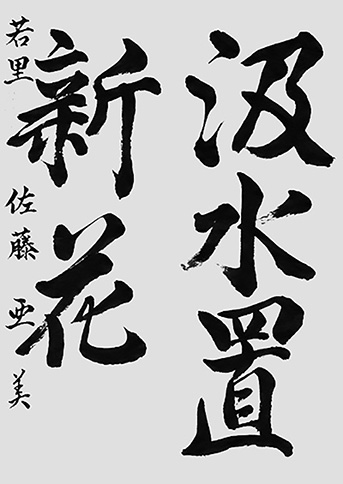 汲水置
新花
若里 佐藤亜美